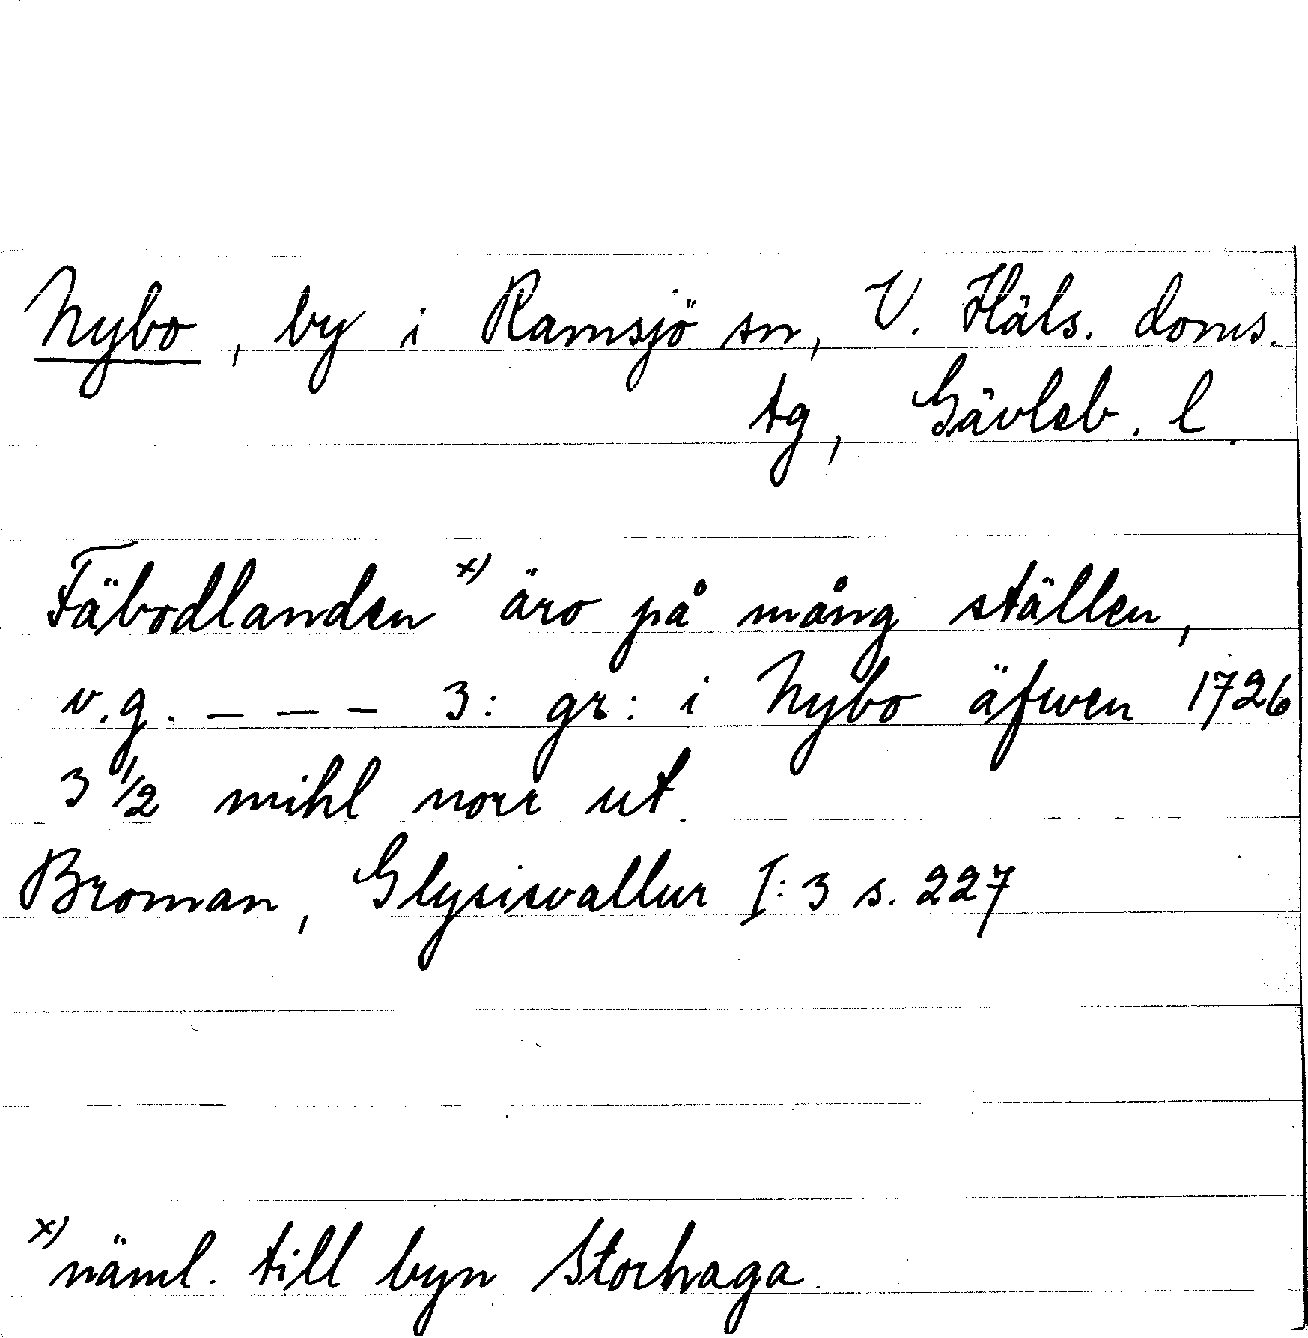 Nybo, by i Ramsjö sn, V. Häls. doms.
tg, Gävleb. l.
Fäbodlanden x) äro på mång ställen,
v.g. _ _ _ 3: gr: i Nybo äfwen 1726
3 1/2 mihl norr ut.
Broman, Glysisvallur I:3 s. 227
x) näml. till byn Storhaga.